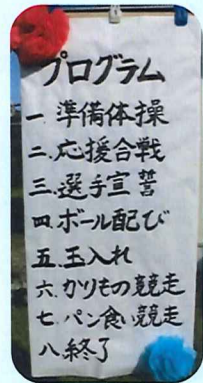 プログラム
一.準備体操
二.応援合戦
三.選手宣誓
四.ボール配び
五.玉入れ
六.かりもの競走
七.パン食い競走
八.終了